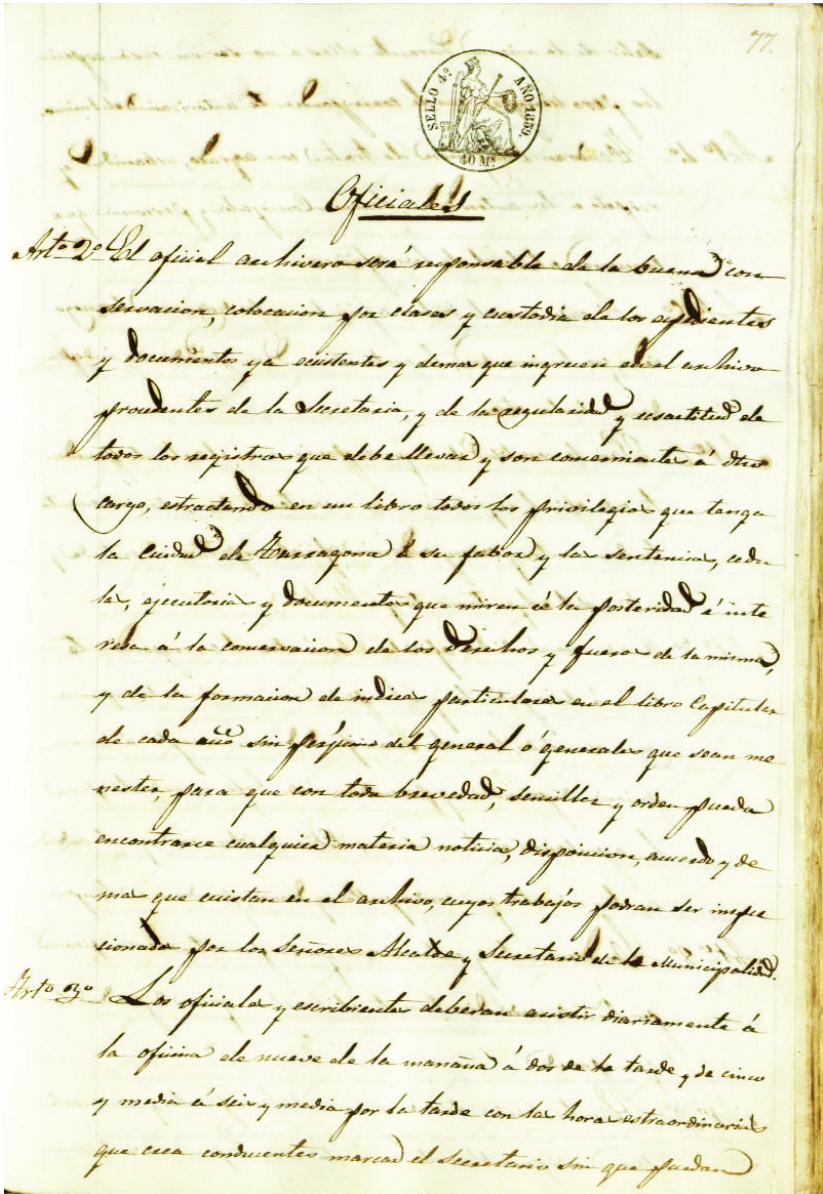 77.
SELLO 4º AÑO 1859.
40 Mˢ
Oficiales
Artº 2º El oficial archivero será responsable de la buena con
servacion, colocacion por clases y custodia de los espedientes
y documentos ya ecsistentes y demas que ingresen en el archivo
procedentes de la Secretaria, y de la regularidad y ecsactitud de
todos los registros que debe llevar y son concernientes á dho
cargo, estractando en un libro todos los privilegios que tenga
la Ciudad de Tarragona á su fabor y las sentencias, cedu
las, ejecutorias y documentos que miren á la posteridad é inte
resa á la conservacion de los derechos y fueros de la misma,
y de la formacion de indices particulares en el libro Capitular
de cada año sin perjuicio del general ó generales que sean me
nester, para que con toda brevedad, sencillez y orden pueda
encontrarse cualquiera materia noticia, disposicion, acuerdo y de
mas que ecsistan en el archivo, cuyos trabajos podran ser inspec
cionados por los Señores Alcalde y Secretario de la Municipalidad.
Artº 3º Los oficiales y escribientes deberan asistir diariamente á
la oficina de nueve de la mañana á dos de la tarde y de cinco
y media á seis y media por la tarde con las horas estraordinarias
que crea conducentes marcar el secretario sin que puedan